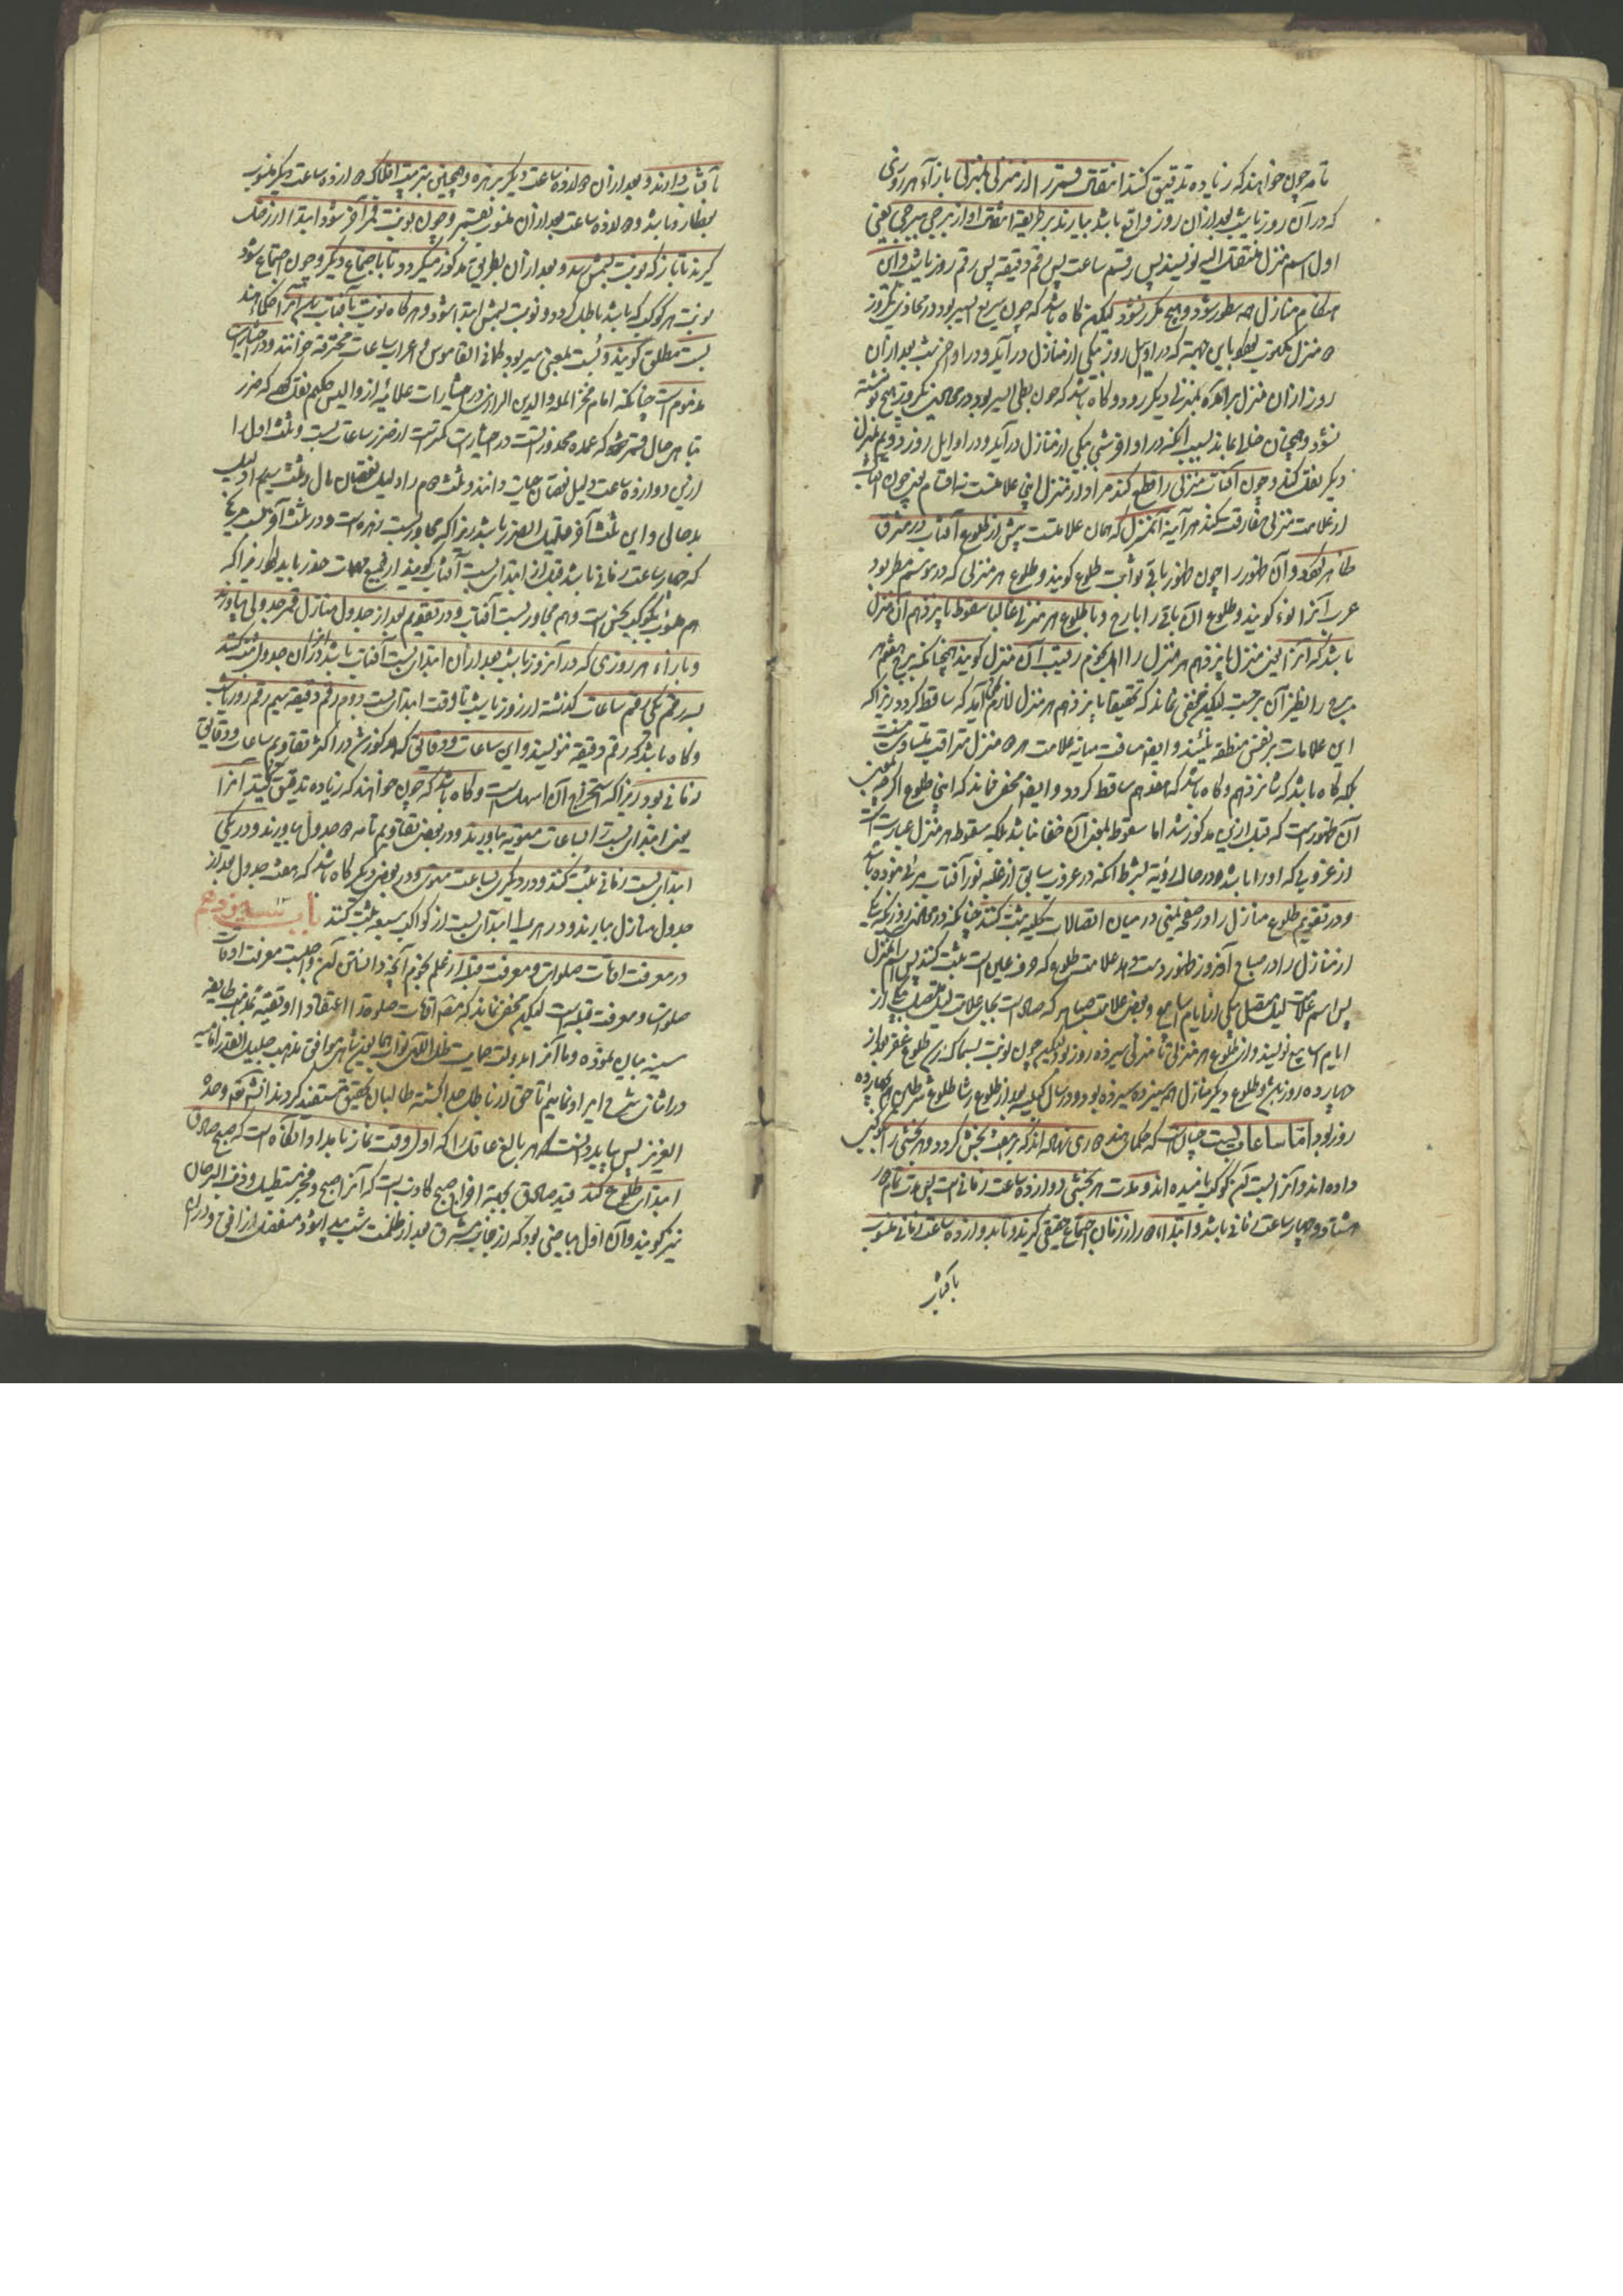 تامه چون خواهند که زیاده تدقیق کنند انتقال قمر را از منزلی بمنزلی بازآء هر روزی
که در آن روز یا شب بعد از آن روز واقع باشد بیارند بر طریقه انتقال او از برجی ببرجی یعنی
اول اسم منزل منتقل الیه نویسند پس رقم ساعت پس رقم دقیقه پس رقم روز یا شب و این
هنگام منازل همه مسطور شود و هیچ مکرر نشود لیکن گاه باشد که چون سریع السیر بود در محاذی یکروز
دو منزل مکتوب بود باین جهة که در اوایل روز بیکی از منازل درآید و در اواخر شب بعد از آن
روز از آن منزل بمنزلی دیگر رود و گاه باشد که چون بطی السیر بود در محاذی یکروز هیچ نوشته
نشود و همچنان خالی بماند بسبب آنکه در اواخر شبی بیکی از منازل درآید و در اوایل روز دویم بمنزل
دیگر نقل کند و چون آفتاب منزلی را قطع کند مراد از منزل اینجا علامتست نه اقسام یعنی چون آفتاب
از علامت منزلی مفارقت کند هر آینه آنمنزل که همان علامتست پیش از طلوع آفتاب در مشرق
ظاهر شود و آن ظهور را چون ظهور باقی ثوابت طلوع گویند و طلوع هر منزلی که در موسم مطر بود
عرب آنرا نوء گویند و طلوع باقی را بارح و با طلوع هر منزلی غالبا سقوط پانزدهم آن منزل
باشد که آنرا یعنی منزل پانزدهم هر منزل را اهل نجوم رقیب آن منزل گویند همچنانکه برج هفتم هر
برج را نظیر آن برجست لیکن مخفی نماند که تحقیقا پانزدهم هر منزل لازم نیاید که ساقط گردد زیرا که
این علامات بر نفس منطقه نیستند و ایضا مسافت میانه علامت هر دو منزل متراقب متساوی نیست
بلکه گاه باشد که شانزدهم و گاه باشد که هفدهم ساقط گردد و ایضا مخفی نماند که اینجا طلوع اگرچه بمعنی
آن ظهورست که قبل ازین مذکور شد اما سقوط بمعنی آن خفا نباشد بلکه سقوط هر منزل عبارتست
از غروبی که او را باشد و در حال رؤیة بشرط آنکه در غروب سابق از غلبه نور آفتاب مرئی نبوده باشد
و در تقویم طلوع منازل را در صفحه یمنی در میان اتصالات کلیه ثبت کنند چنانکه در محاذی روزیکه یکی
از منازل را در صباح آنروز ظهور دست دهد علامت طلوع که حرف عین است ثبت کنند پس اسم آنمنزل
پس اسم علامت لیله متصل بیکی از ایام اسابیع و بعضی علامت صباح که صاد است بجای علامت لیله متصل بیکی از
ایام اسابیع نویسند و از طلوع هر منزلی تا منزلی سیزده روز بود لیکن چون نوبت بسماک رسد طلوع غفر بعد از
چهارده روز باشد و طلوع دیگر منازل همه سیزده سیزده بود و در سال کبیسه بعد از طلوع رشا طلوع شرطین هم چهارده
روز بود اما ساعات بست چنانست که حکمای هند دوری نهاده اند که بهفت بخش گردد و هر بخشی را بکوکبی
داده اند و آنرا بست آن کوکب نامیده اند و مدت هر بخشی دوازده ساعت زمانی است پس مدت تمام دور
هشتاد و چهار ساعت زمانی باشد و ابتداء دور از زمان اجتماع حقیقی گیرند و تا بدوازده ساعت زمانی منسوب
بآفتاب
بآفتاب دارند و بعد از آن دوازده ساعت دیگر بزهره و همچنین بترتیب افلاک دوازده ساعت دیگر منسوب
بعطارد باشد و دوازده ساعت بعد از آن منسوب بقمر و چون نوبت قمر آخر شود ابتدا از زحل
گیرند تا باز که نوبت بشمس رسد و بعد از آن بطریق مذکور میگردد تا باجتماع دیگر و چون اجتماع شود
نوبت هر کوکب که باشد باطل گردد و نوبت شمس ابتدا شود و هرگاه نوبت بآفتاب رسد آنرا حکماء هند
بست مطلق گویند و بست بمعنی سیر بود کما فی القاموس و اعراب ساعات محترقه خوانند و در اختیارات
مذموم است چنانکه امام فخر الملة والدین الرازی در اختیارات علائیه از والیس حکیم نقل کرده که ضرر
تباهی حال قمر که عمده محذوراتست در اختیارات کمترست از ضرر ساعات بست و ثلث اول را
ازین دوازده ساعت دلیل نقصان حیات دانند و ثلث دوم را دلیل نقصان مال و ثلث سیم را دلیل
بدحالی و این ثلث آخر قلیل الضرر باشد زیرا که مجاور بست زهره است و در ثلث آخر بست مریخ
که چهار ساعت زمانی باشد قبل از ابتدای بست آفتاب گویند از جمیع مهمات حذر باید کرد زیرا که
هم منسوب بکوکب نحس است و هم مجاور بست آفتاب و در تقویم بعد از جدول منازل قمر جدولی بیاورند
و بازاء هر روزی که در آنروز یا شب بعد از آن ابتدای بست آفتاب باشد در آن جدول ثبت کنند
سه رقم یکی رقم ساعات گذشته از روز یا شب تا وقت ابتدای بست دوم رقم دقیقه سیم رقم روز یا شب
و گاه باشد که رقم دقیقه ننویسند و این ساعات و دقایق که مذکور شد در اکثر تقاویم ساعات و دقایق
زمانی بود زیرا که استخراج آن اسهل است و گاه باشد که چون خواهند که زیاده تدقیق کنند آنرا
یعنی ابتدای بست را بساعات مستویه بیاورند و در بعضی تقاویم تامه دو جدول بیاورند و در یکی
ابتدای بست زمانی ثبت کنند و در دیگری بساعت مستوی و در بعضی دیگر گاه باشد که هفت جدول بعد از
جدول منازل بیارند و در هر یک ابتدای بست از کواکب سبعه ثبت کنند باب سیزدهم
در معرفت اوقات صلوات و معرفت قبله از علم نجوم آنچه دانستن آن واجبست معرفت اوقات
صلوات و معرفت قبله است لیکن مخفی نماند که مصنف اوقات صلوة را اعتقادا او تقیة بمذهب طایفه
سنیه بیان نموده و ما آنرا بدولت حمایت ظل اللهی نواب همایون شاهی موافق مذهب جلیل القدر امامیه
در اثنای شرح ایراد نماییم تا حق از باطل جدا گشته طالبان تحقیق مستفید گردند انشاءالله وحده
العزیز پس بباید دانست که هر بالغ عاقل را که اول وقت نماز بامداد آنگاه است که صبح صادق
ابتدای طلوع کند قید صادق بجهة اخراج صبح کاذب است که آنرا صبح و فجر مستطیل و ذنب السرحان
نیز گویند و آن اول بیاضی بود که از جانب مشرق بعد از ظلمت شب پیدا شود منفصل از افق و دراز